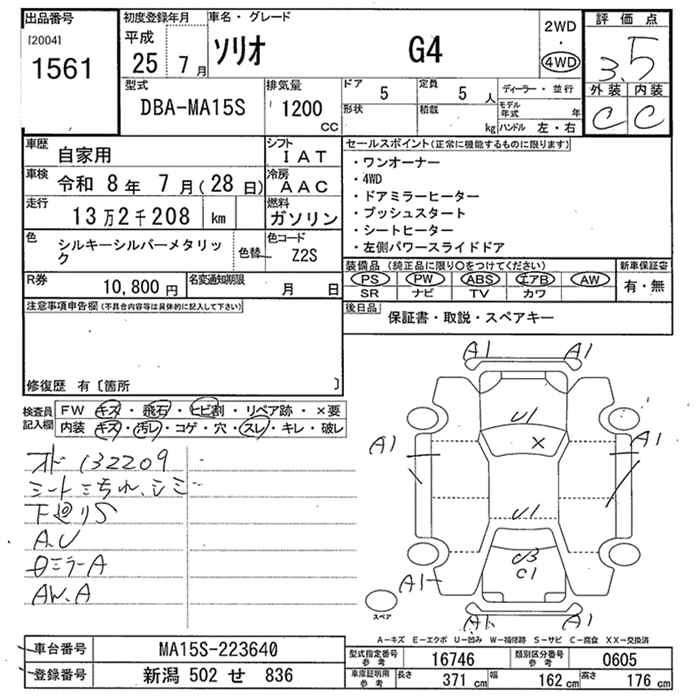 出品番号
[2004]
1561
初度登録年月
平成
25 7 月
車名・グレード
ソリオ G4
2WD
・
4WD
評価点
3.5
外装 内装
C C
型式
DBA-MA15S
排気量
1200 cc
ドア 5
定員 5 人
形状
積載 kg
ディーラー・並行
モデル年式 年
ハンドル 左・右
車歴
自家用
シフト
IAT
車検 令和 8 年 7 月 ( 28 日)
冷房
AAC
走行 13 万 2 千 208 km
燃料
ガソリン
色
シルキーシルバーメタリック
色替
色コード
Z2S
R券 10,800 円
名変通知期限 月 日
セールスポイント(正常に機能するものに限ります)
・ワンオーナー
・4WD
・ドアミラーヒーター
・プッシュスタート
・シートヒーター
・左側パワースライドドア
装備品 (純正品に限り○をつけてください)
PS PW ABS エアB AW
SR ナビ TV カワ
新車保証書
有・無
後日品
保証書・取説・スペアキー
注意事項申告欄(不具合内容等は具体的に記入して下さい)
修復歴 有〔箇所 〕
検査員記入欄
FW キズ・飛石・ヒビ割・リペア跡・×要
内装 キズ・汚レ・コゲ・穴・スレ・キレ・破レ
オド 132209
シートこすれ、シミ
下廻りS
A.U
ロミラーA
AW.A
A1 A1
U1
×
A1 A1
U1
C3
C1
A1
A1 A1
スペア
A-キズ E-エクボ U-凹み W-補修跡 S-サビ C-腐食 XX-交換済
車台番号 MA15S-223640
登録番号 新潟 502 せ 836
型式指定番号参考 16746
類別区分番号参考 0605
車庫証明用参考 長さ 371 cm 幅 162 cm 高さ 176 cm